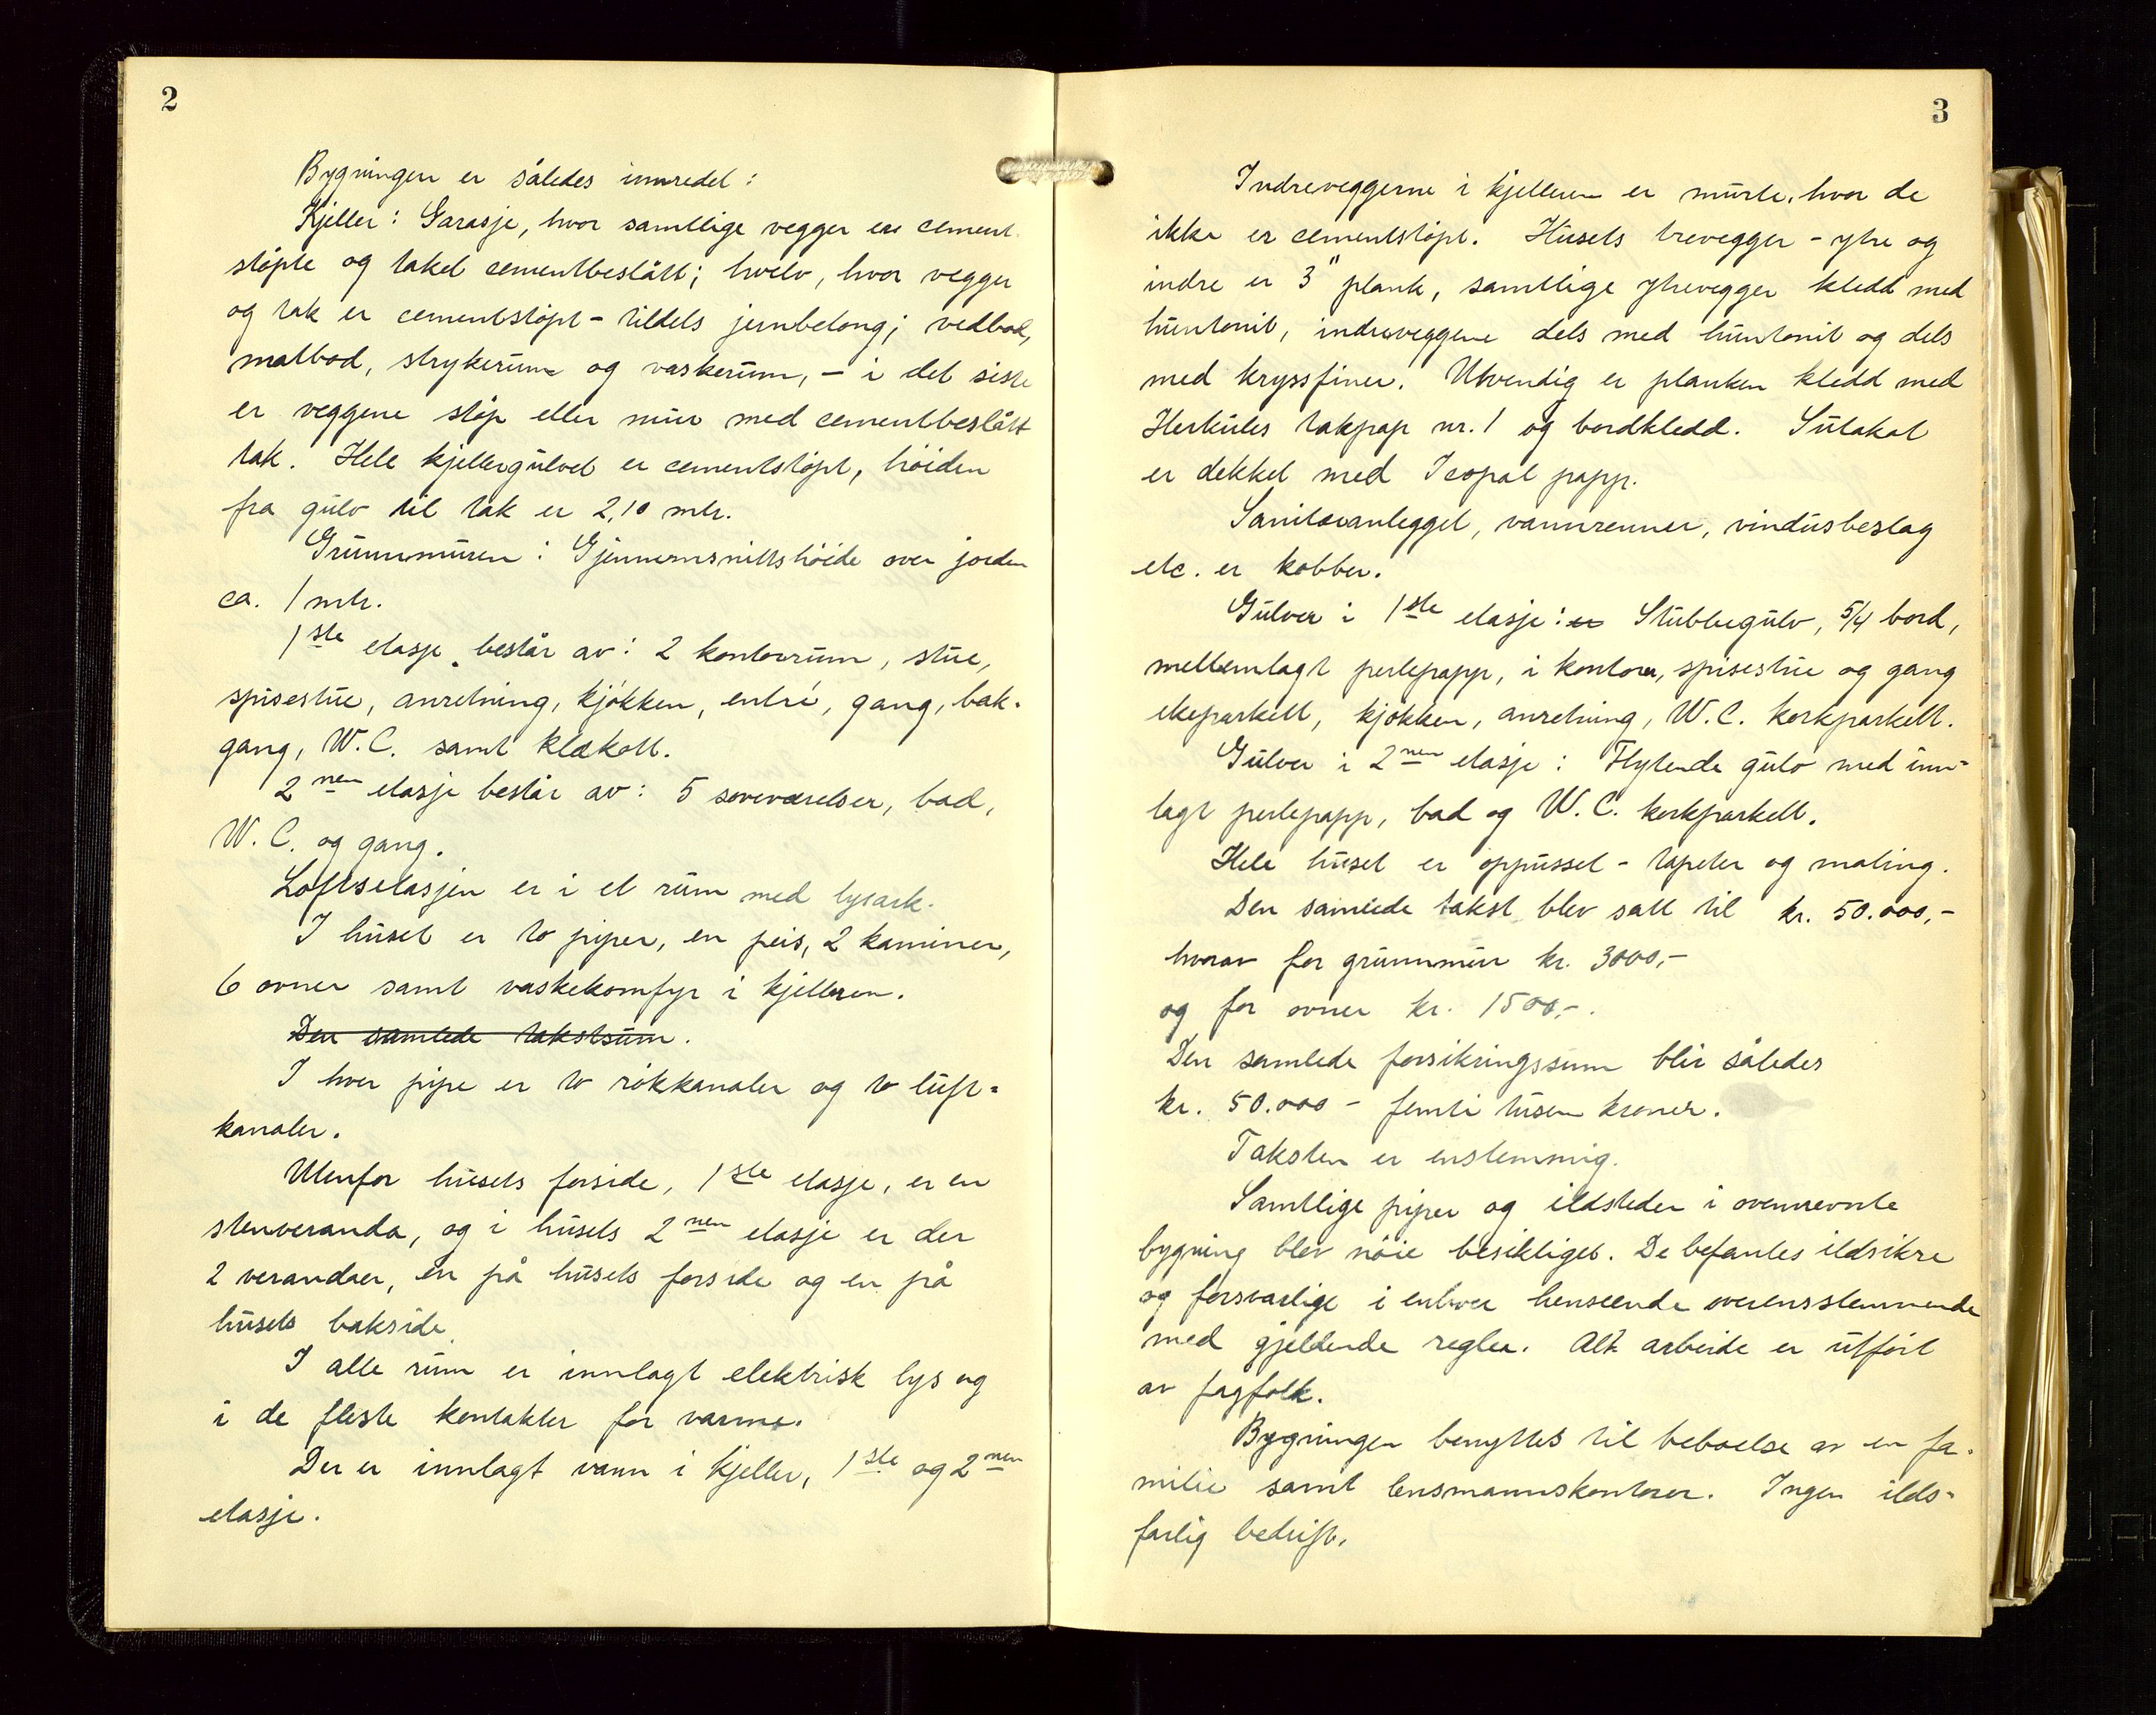 2
Bygningen er således innredet:
Kjeller: Garasje, hvor samtlige vegger er cement
støpte og taket cementbeslått; hvelv, hvor vegger
og tak er cementstøpt - tildels jernbetong; vedbod,
matbod, strykerum og vaskerum, - i det siste
er veggene støp eller mur med cementbeslått
tak. Hele kjellergulvet er cementstøpt, høiden
fra gulv til tak er 2,10 mtr.
Grunnmuren: Gjennemsnittshøide over jorden
ca. 1 mtr.
1ste etasje består av: 2 kontorrum, stue,
spisestue, anretning, kjøkken, entré, gang, bak-
gang, W.C. samt klækott.
2nen etasje består av: 5 soveværelser, bad,
W.C. og gang.
Loftsetasjen er i et rum med lysark.
I huset er to piper, en peis, 2 kaminer,
6 ovner samt vaskekomfyr i kjelleren.
Den samlede takstsum.
I hver pipe er to røkkanaler og to luft=
kanaler.
Utenfor husets forside, 1ste etasje, er en
stenveranda, og i husets 2nen etasje er der
2 verandaer, en på husets forside og en på
husets bakside.
I alle rum er innlagt elektrisk lys og
i de fleste kontakter for varme.
Der er innlagt vann i kjeller, 1ste og 2nen
etasje.
3
Indreveggerne i kjelleren er murte, hvor de
ikke er cementstøpt. Husets trevegger - ytre og
indre er 3" plank, samtlige ytrevegger kledd med
huntonit, indreveggene dels med huntonit og dels
med kryssfiner. Utvendig er planken kledd med
Herkules takpap nr. 1 og bordkledd. Sutaket
er dekket med Icopal papp.
Sanitæranlegget, vannrenner, vindusbeslag
etc. er kobber.
Gulver i 1ste etasje: er Stubbegulv, 5/4 bord,
mellemlagt perlepapp, i kontorer, spisestue og gang
ekeparkett, kjøkken, anretning, W.C. korkparkett.
Gulver i 2nen etasje: Flytende gulv med inn-
lagt perlepapp, bad og W.C. korkparkett.
Hele huset er oppusset - tapeter og maling.
Den samlede takst blev satt til kr. 50.000,-
hvorav for grunnmur kr. 3000,-
og for ovner kr. 1500,-.
Den samlede forsikringssum blir således
kr. 50.000 - femti tusen kroner.
Taksten er enstemmig.
Samtlige piper og ildsteder i ovennevnte
bygning blev nøie besiktiget. De befantes ildsikre
og forsvarlige i enhver henseende overensstemmende
med gjeldende regler. Alt arbeide er utført
av fagfolk.
Bygningen benyttes til beboelse av en fa-
milie samt lensmannskontorer. Ingen ilds-
farlig bedrift.